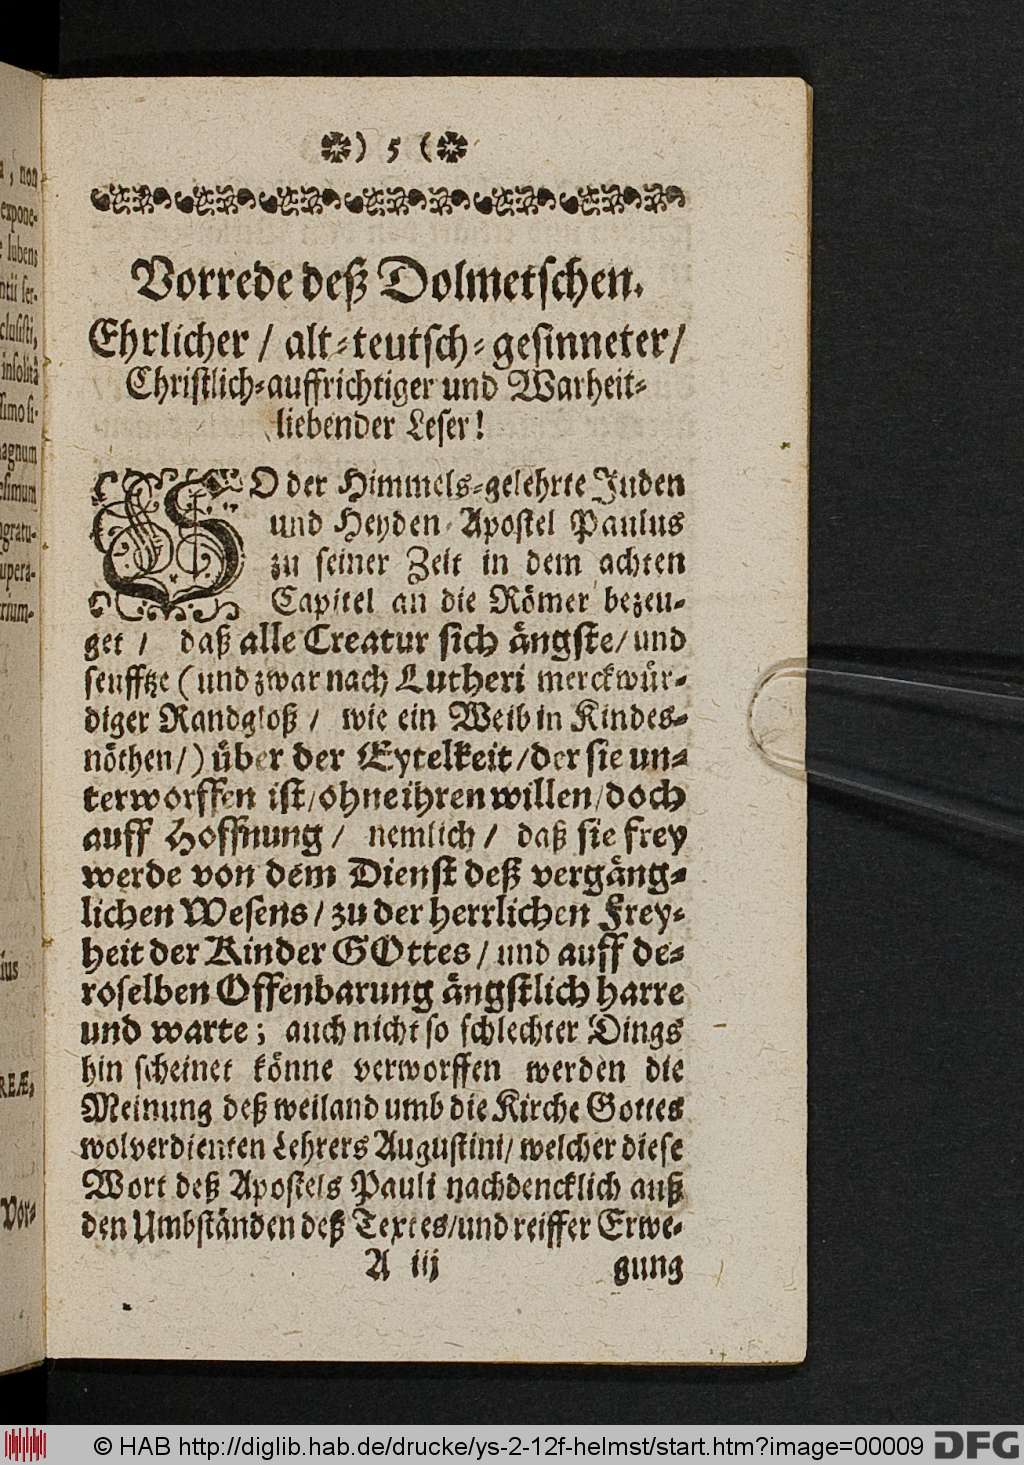 a, non
expone-
lubens
ntii ser-
clusisti,
insolitâ
simo si-
agnum
esimum
ngratu-
upera-
rium-
ius
REÆ,
Vor-
) 5 (
Vorrede deß Dolmetschen.
Ehrlicher / alt-teutsch-gesinneter /
Christlich-auffrichtiger und Warheit-
liebender Leser!
SO der Himmels-gelehrte Juden
und Heyden-Apostel Paulus
zu seiner Zeit in dem achten
Capitel an die Römer bezeu-
get / daß alle Creatur sich ängste / und
seufftze (und zwar nach Lutheri merckwür-
diger Randgloß / wie ein Weib in Kindes-
nöthen /) über der Eytelkeit / der sie un-
terworffen ist / ohne ihren willen / doch
auff Hoffnung / nemlich / daß sie frey
werde von dem Dienst deß vergäng-
lichen Wesens / zu der herrlichen Frey-
heit der Kinder GOttes / und auff de-
roselben Offenbarung ängstlich harre
und warte; auch nicht so schlechter Dings
hin scheinet könne verworffen werden die
Meinung deß weiland umb die Kirche Gottes
wolverdienten Lehrers Augustini / welcher diese
Wort deß Apostels Pauli nachdencklich auß
den Umbständen deß Textes / und reiffer Erwe-
A iij gung
© HAB http://diglib.hab.de/drucke/ys-2-12f-helmst/start.htm?image=00009 DFG